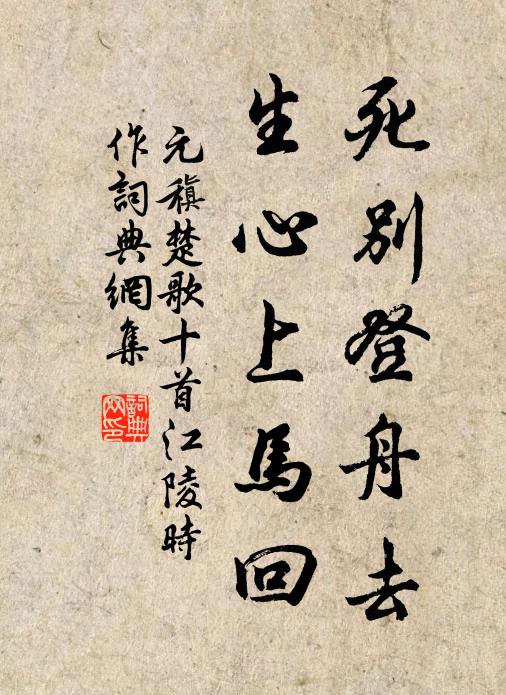 死別登舟去
生心上馬回
元稹楚歌十首江陵時
作詞典網集
詞典
网印